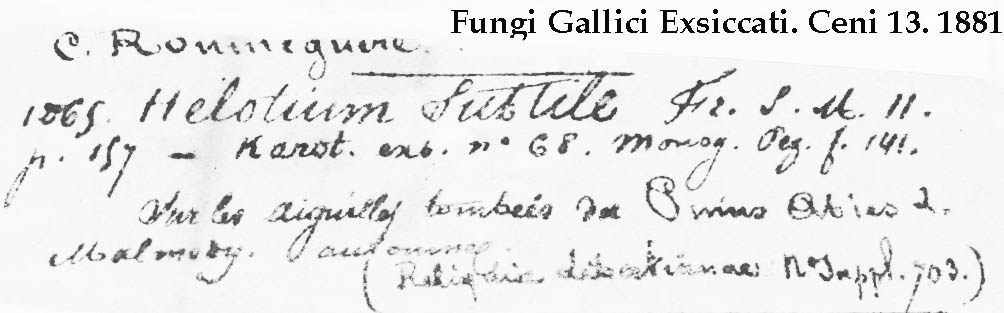 Fungi Gallici Exsiccati. Ceni 13. 1881
C. Roumeguère.
1065. Helotium Subtile Fr. S. M. II.
p. 157 – Karst. exs. n° 68. Monog. Pez. f. 141.
Sur les aiguilles tombées du Pinus Abies L.
Malmedy. automne.
(Reliquiae Libertianae N° Suppl. 703.)